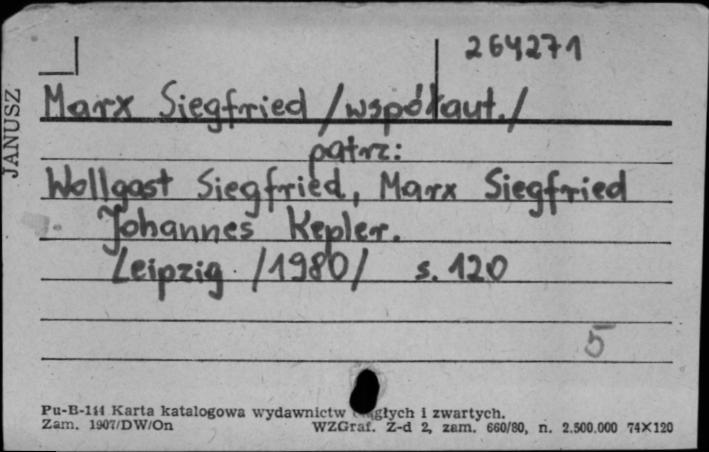 264271
JANUSZ
Marx Siegfried /współaut./
patrz:
Wollgast Siegfried, Marx Siegfried
Johannes Kepler.
Leipzig /1980/ s. 120
5
Pu-B-144 Karta katalogowa wydawnictw ciągłych i zwartych.
Zam. 1907/DW/On WZGraf. Z-d 2, zam. 660/80, n. 2.500.000 74×120